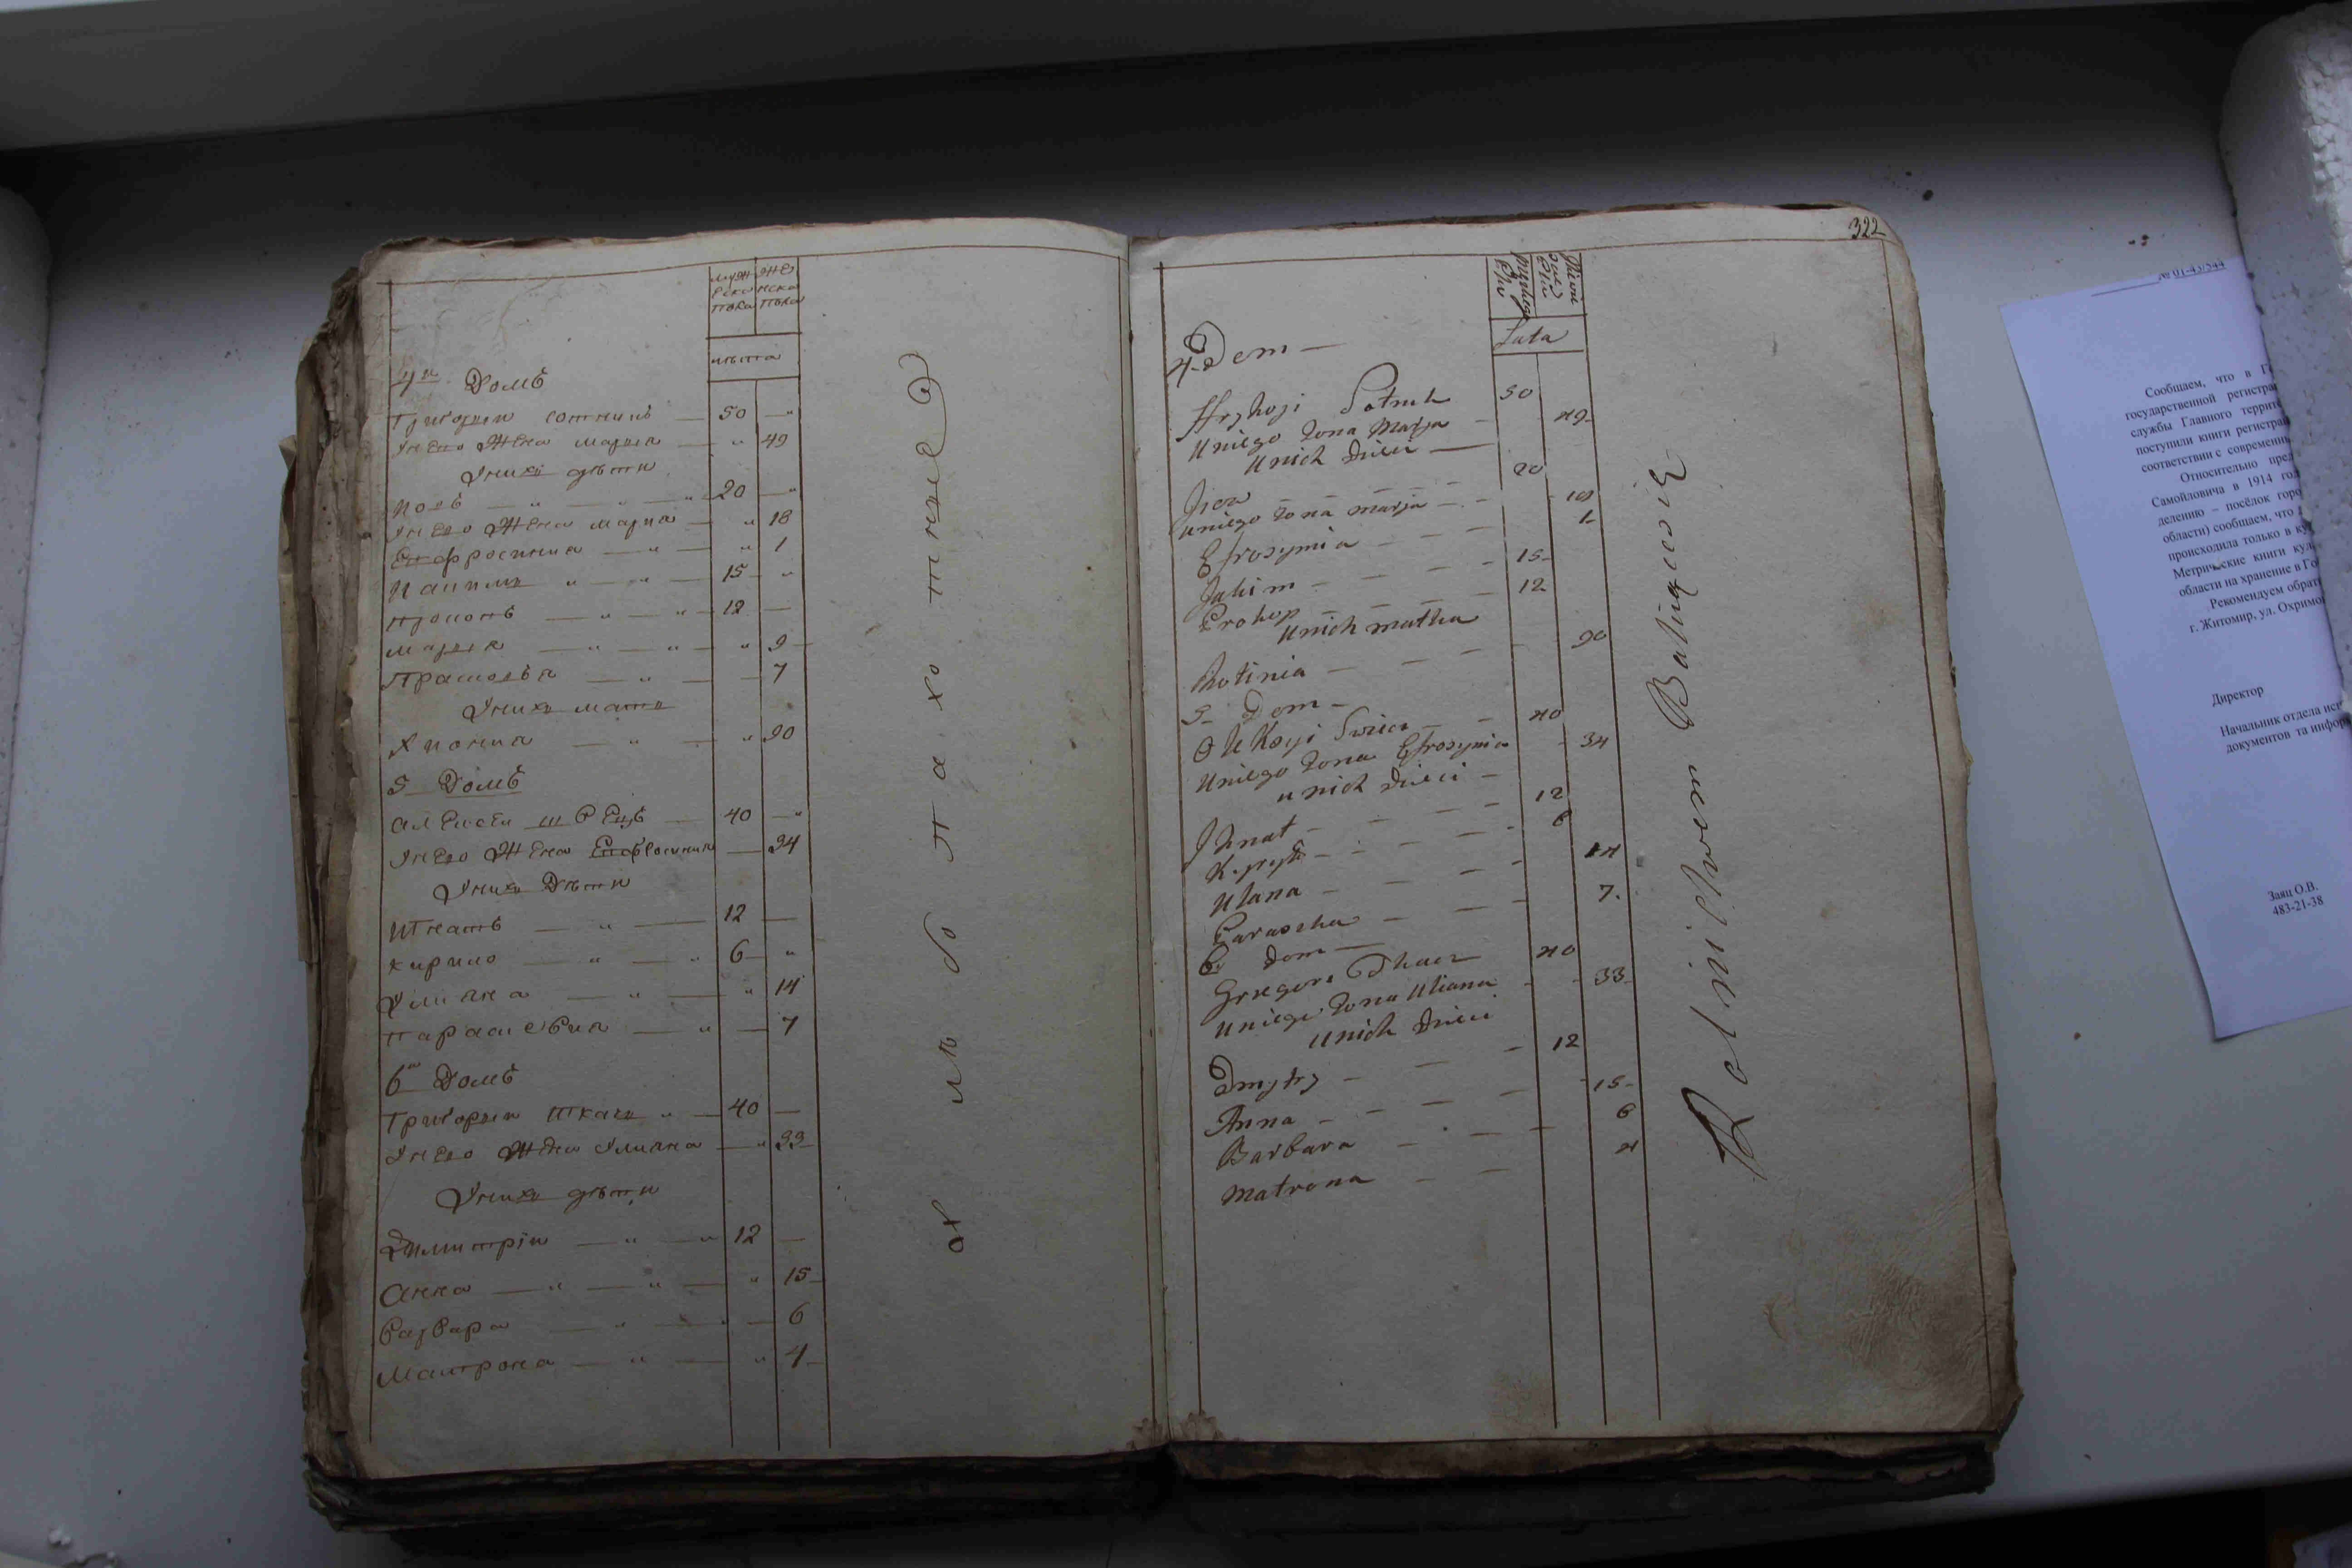 муж же
ска нска
полка полка
лѣта
4й Домъ
Григорій Сотникъ — 50 — "
У него Жена Марія — " 49
У нихъ дѣти
20 — "
У него Жена Марія — " 18
Евфросинія — " — " 1
Иакимъ " — " — 15 — "
Прокопъ — " — " 12 —
Марія — " — " — " 9
7
У нихъ мать
Хионія — " — " 90
5 Домъ
Алексѣй Швецъ — 40 — "
У него Жена Евфросинія — 34
У нихъ Дѣти
Игнатъ — " — 12 —
Кирило — " — " 6 "
Улияна — " — " 14
Параскевия — " — 7
6й Домъ
Григорій Ткачъ " — 40 —
У него Жена Улияна — " 33
У нихъ дѣти
Димитрій — " — " 12 —
Анна — " — " — " 15
Варвара — " — " — 6
Матрона — " — " 4
хлѣбопахотные
322
Lata
4. Dom —
Hryhoji Sotnik 50
U niego żona Marja — 49
U nich dzieci —
20
U niego żona Marja — 18
Efrosynia — — — 1
Jakim — — — 15
Prokop — — — 12
U nich matka
Chotinia — — — 90
5 Dom —
Olekseji Szwiec — — 40
U niego żona Efrosynia — 34
U nich dzieci —
Ihnat — — — 12
6
Ulana — — — 14
Paraska — — — 7.
6 Dom —
Grzegorz Tkacz 40
U niego żona Uliana — — 33
U nich dzieci
Dmytry — — — 12
Anna — — — — 15
Barbara — — — 6
Matrona — — 4
Rolnictwem
№ 01-43/544
Сообщаем, что в
государственной регистра
службы Главного террито
поступили книги регистра
соответствии с современн
Относительно пред
Самойловича в 1914 го
делению – посёлок горо
области) сообщаем, что
происходила только в
Метрические книги
области на хранение в Го
Рекомендуем обрат
г. Житомир, ул. Охримо
Директор
Начальник отдела
документов та инфор
Заяц О.В.
483-21-38